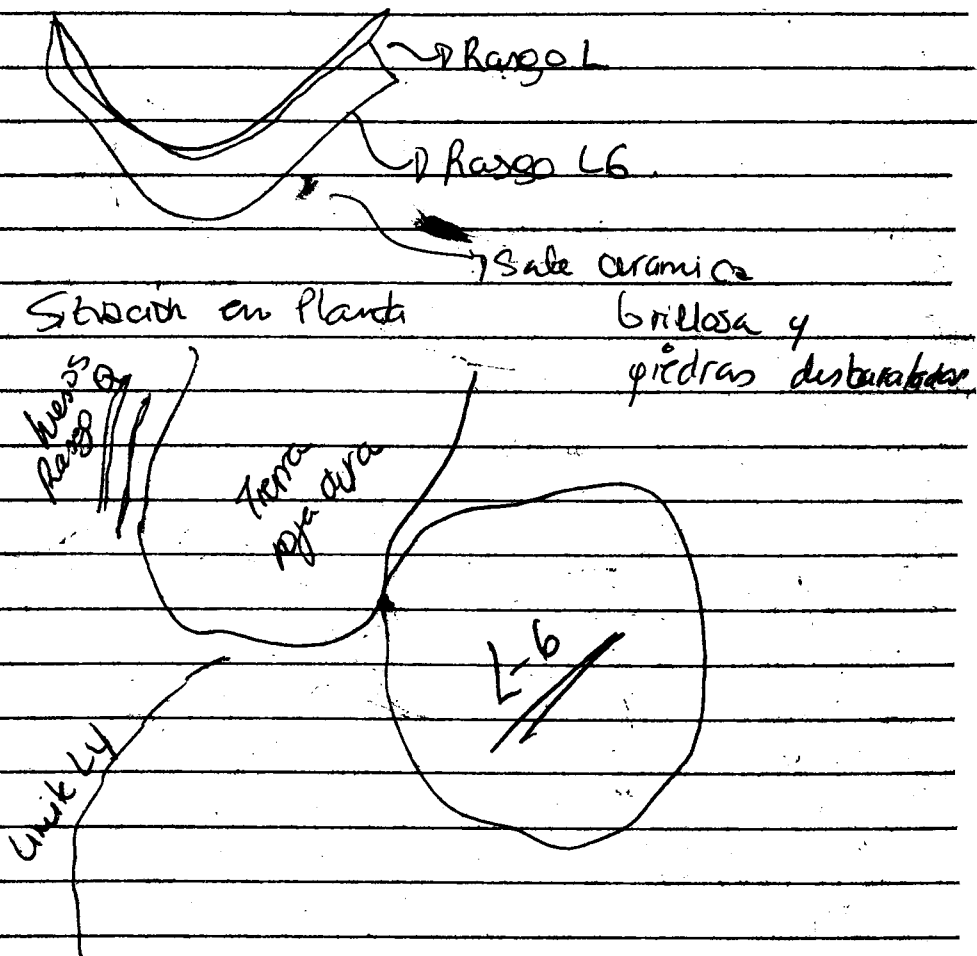 Rasgo L
Rasgo L6
Sale ceramica
brillosa y
piedras desbaratadas
Situación en Planta
huesos
Rasgo Q
Tierra
roja dura
L-6
Limite L4